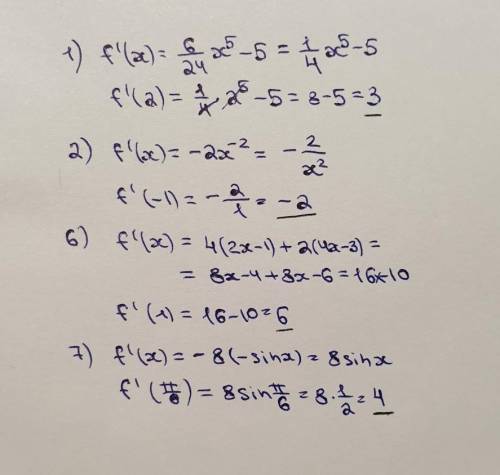 1) f'(x) = 6/24 x⁵ - 5 = 1/4 x⁵ - 5
f'(2) = 1/4 · 2⁵ - 5 = 8 - 5 = 3
2) f'(x) = -2x⁻² = - 2/x²
f'(-1) = - 2/1 = -2
6) f'(x) = 4(2x-1) + 2(4x-3) =
= 8x - 4 + 8x - 6 = 16x - 10
f'(1) = 16 - 10 = 6
7) f'(x) = -8(-sinx) = 8sinx
f'(π/6) = 8sin π/6 = 8 · 1/2 = 4